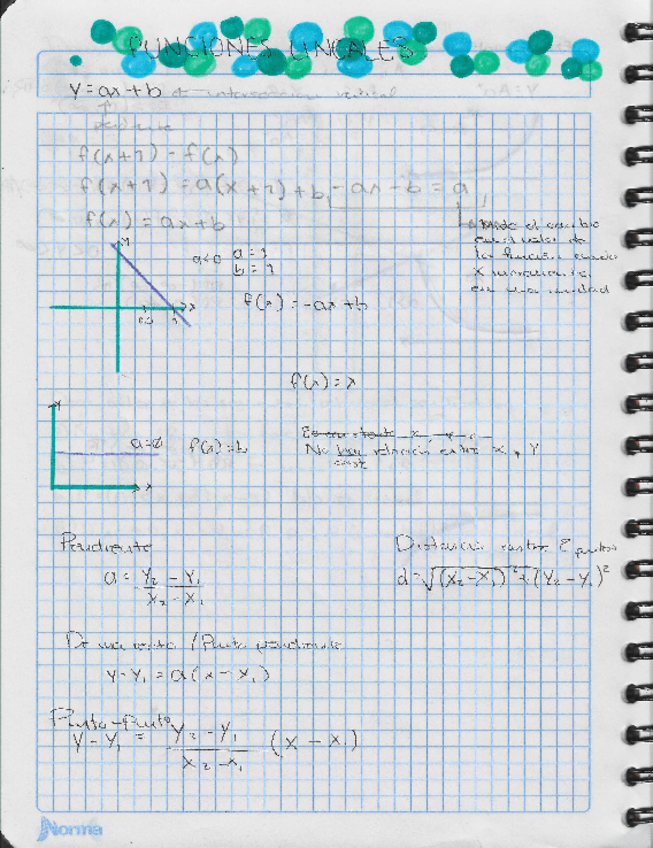 FUNCIONES LINEALES
y = ax + b ← intersección vertical
↑
pendiente
f(x+1) - f(x)
f(x+1) = a(x+1) + b, - ax - b = a
f(x) = ax + b
↳ Mide el cambio
en el valor de
la función cuando
x incrementa
en una unidad
y
a<0 a = 1
b = 1
f(x) = -ax + b
x
f(x) = x
y
a=0 f(x) = b
No hay relación entre x, y
const
x
Pendiente
a = y₂ - y₁ / x₂ - x₁
Distancia entre 2 puntos
d = √(x₂ - x₁)² + (y₂ - y₁)²
De una recta / Punto pendiente
y - y₁ = a(x - x₁)
Punto-Punto
y - y₁ = y₂ - y₁ / x₂ - x₁ (x - x₁)
Norma